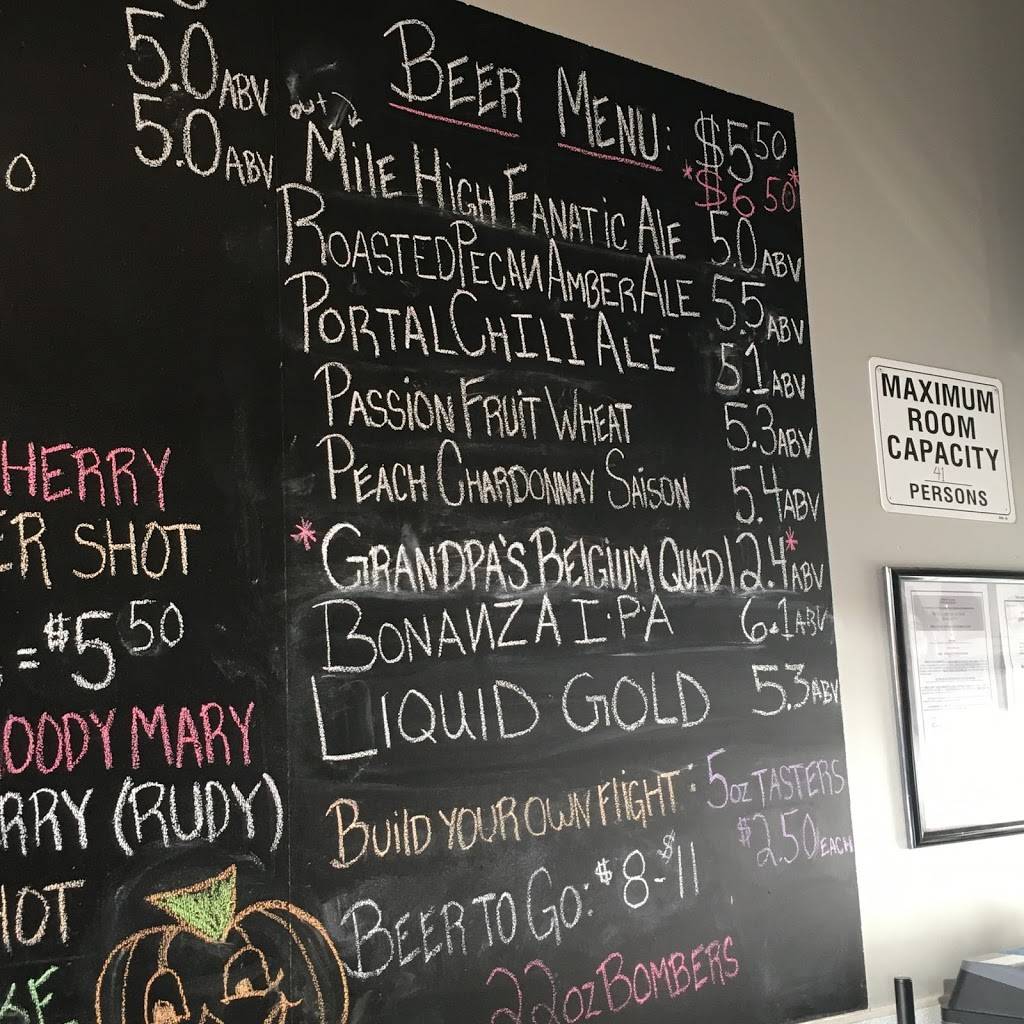 5.0 ABV
5.0 ABV
HERRY
ER SHOT
= $5 50
OODY MARY
RRY (RUDY)
HOT
BEER MENU: $5 50
*$6 50*
out
MILE HIGH FANATIC ALE 5.0 ABV
ROASTED PECAN AMBER ALE 5.5 ABV
PORTAL CHILI ALE 5.1 ABV
PASSION FRUIT WHEAT 5.3 ABV
PEACH CHARDONNAY SAISON 5.4 ABV
*GRANDPA'S BELGIUM QUAD 12.4* ABV
BONANZA I.PA 6.1 ABV
LIQUID GOLD 5.3 ABV
BUILD YOUR OWN FLIGHT: 5oz TASTERS
$2.50 EACH
BEER TO GO: $8-$11
22oz BOMBERS
MAXIMUM
ROOM
CAPACITY
41
PERSONS